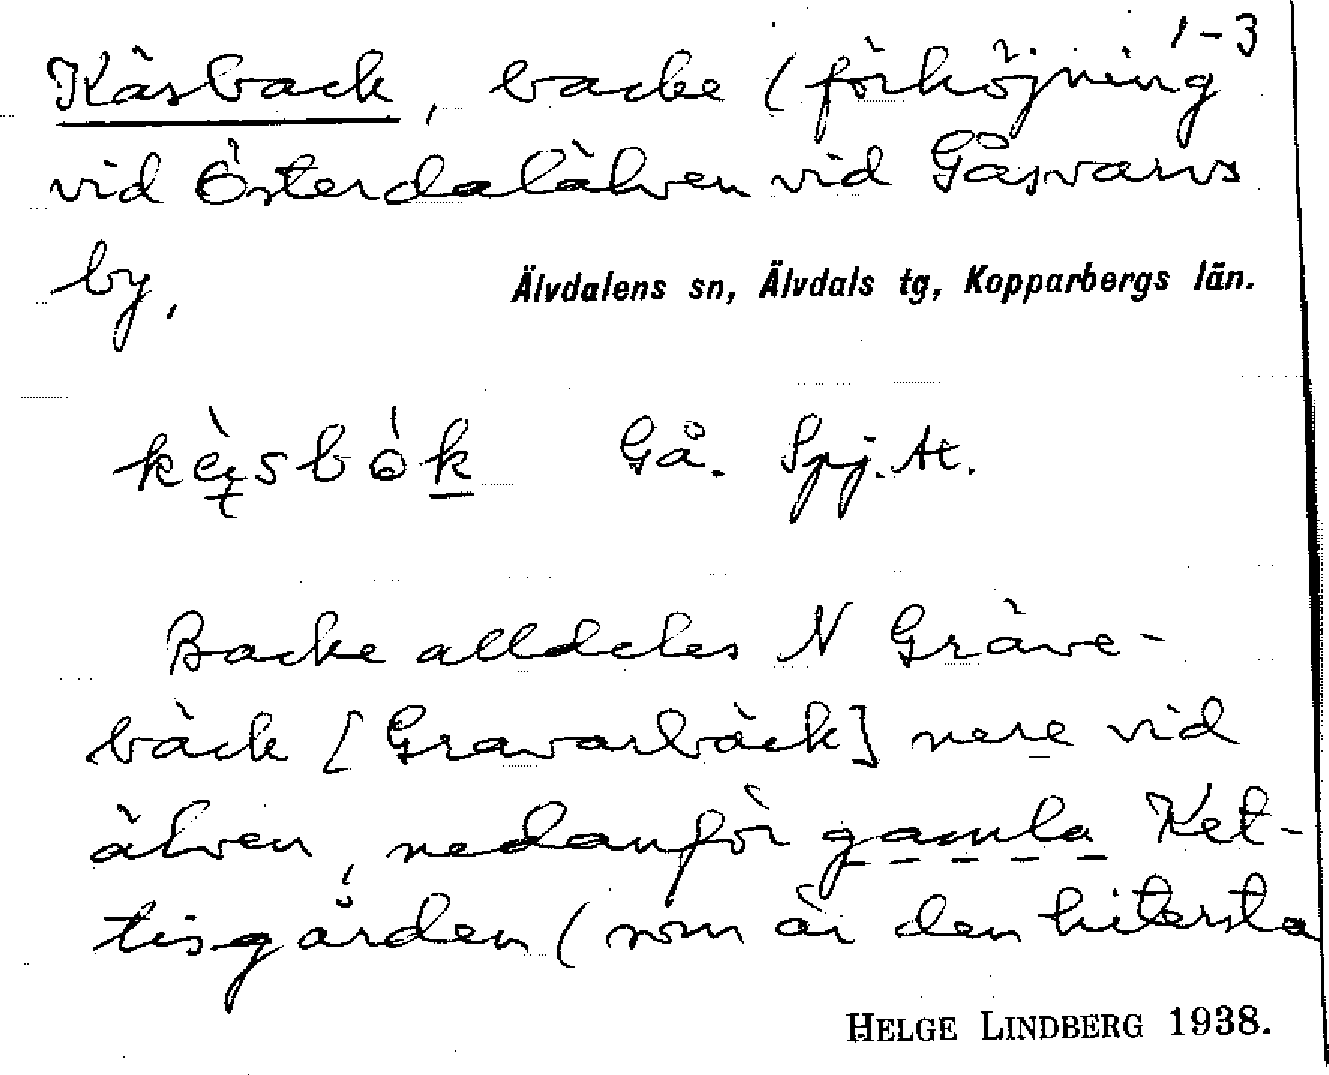 1-3
Käsback, backe (förhöjning
vid Österdalälven vid Gåsvarvs
by,
Älvdalens sn, Älvdals tg, Kopparbergs län.
Gå. Spj. At.
Backe alldeles N Gräve-
bäck [Gravarbäck] nere vid
älven, nedanför gamla Ket-
tisgården (som är den hitersta
HELGE LINDBERG 1938.